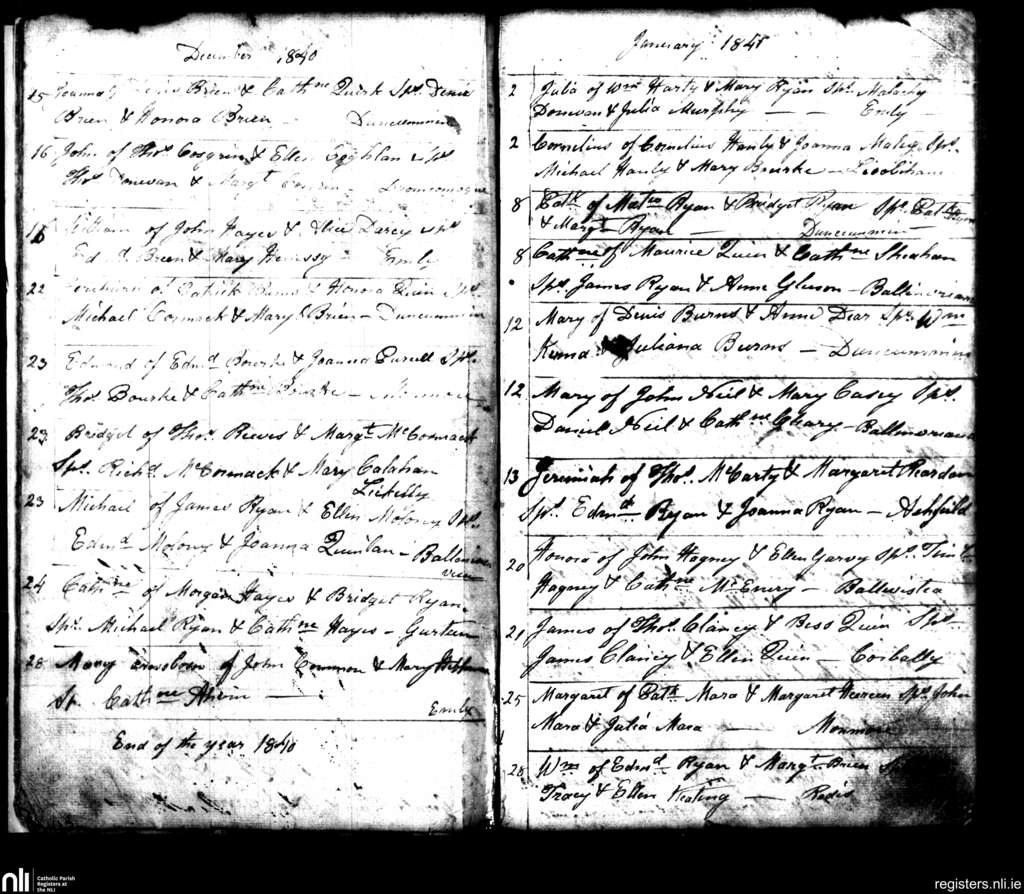 December 1840
15 Joanna of Denis Brien & Cathne Quirk Sps. Denis
Brien & Honora Brien — Duncummin
16 John of Thos. Cosgrin & Ellen Coghlan Sps.
Thos. Donovan & Margt.
16 William of John Hayes & Darcy Sps.
Edmd. Brien & Mary Henessy — Emly
22 of Patrick & Honora Quin Sps.
Michael Cormack & Mary Brien — Duncummin
23 Edmond of Edmd. Bourke & Joanna Pursell Sps.
Thos. Bourke & Cathne Bourke —
23 Bridget of Thos. Reeves & Margt. McCormack
Sps. Richd. McCormack & Mary Calahan
23 Michael of James Ryan & Ellen Molony Sps.
Edmd. Molony & Joanna Quinlan — Ballin
24 Cathne of Morgan Hayes & Bridget Ryan
Sps. Michael Ryan & Cathne Hayes — Gurteen
28 Mary of John Common & Mary
Sp. Cathne —
Emly
End of the year 1840
January 1841
2 Julia of Wm Harty & Mary Ryan Sps. Malachy
Donovan & Julia Murphy — — Emly
2 Cornelius of Cornelius Hanly & Joanna Maley Sps.
Michael Hanly & Mary Bourke —
8 Patk. of Matw Ryan & Bridget Ryan Sps. Patk.
& Margt. Ryan — Duncummin
8 Cathne of Maurice Quin & Cathne Sheahan
Sps. James Ryan & Anne Gleeson — Ballinvrian
12 Mary of Denis Burns & Anne Dear Sps. Wm
Kenna & Juliana Burns — Duncummin
12 Mary of John Neil & Mary Casey Sps.
Daniel Neil & Cathne Cleary — Ballinvriana
13 Jerimiah of Thos. McCarty & Margaret Reardan
Sps. Edmd. Ryan & Joanna Ryan — Ashfield
20 Honora of John Hagney & Ellen Garvy Sps. Tim
Hagney & Cathne McEnery — Ballwistea
21 James of Thos. Clancy & Bess Quin Sps.
James Clancy & Ellen Quin — Corbally
25 Margaret of Patk. Mara & Margaret Sps. John
Mara & Julia Mara — Monmore
26 Wm of Edmd. Ryan & Margt. Brien
Tracy & Ellen Keating — Rodis
nli Catholic Parish
Registers at
the NLI
registers.nli.ie